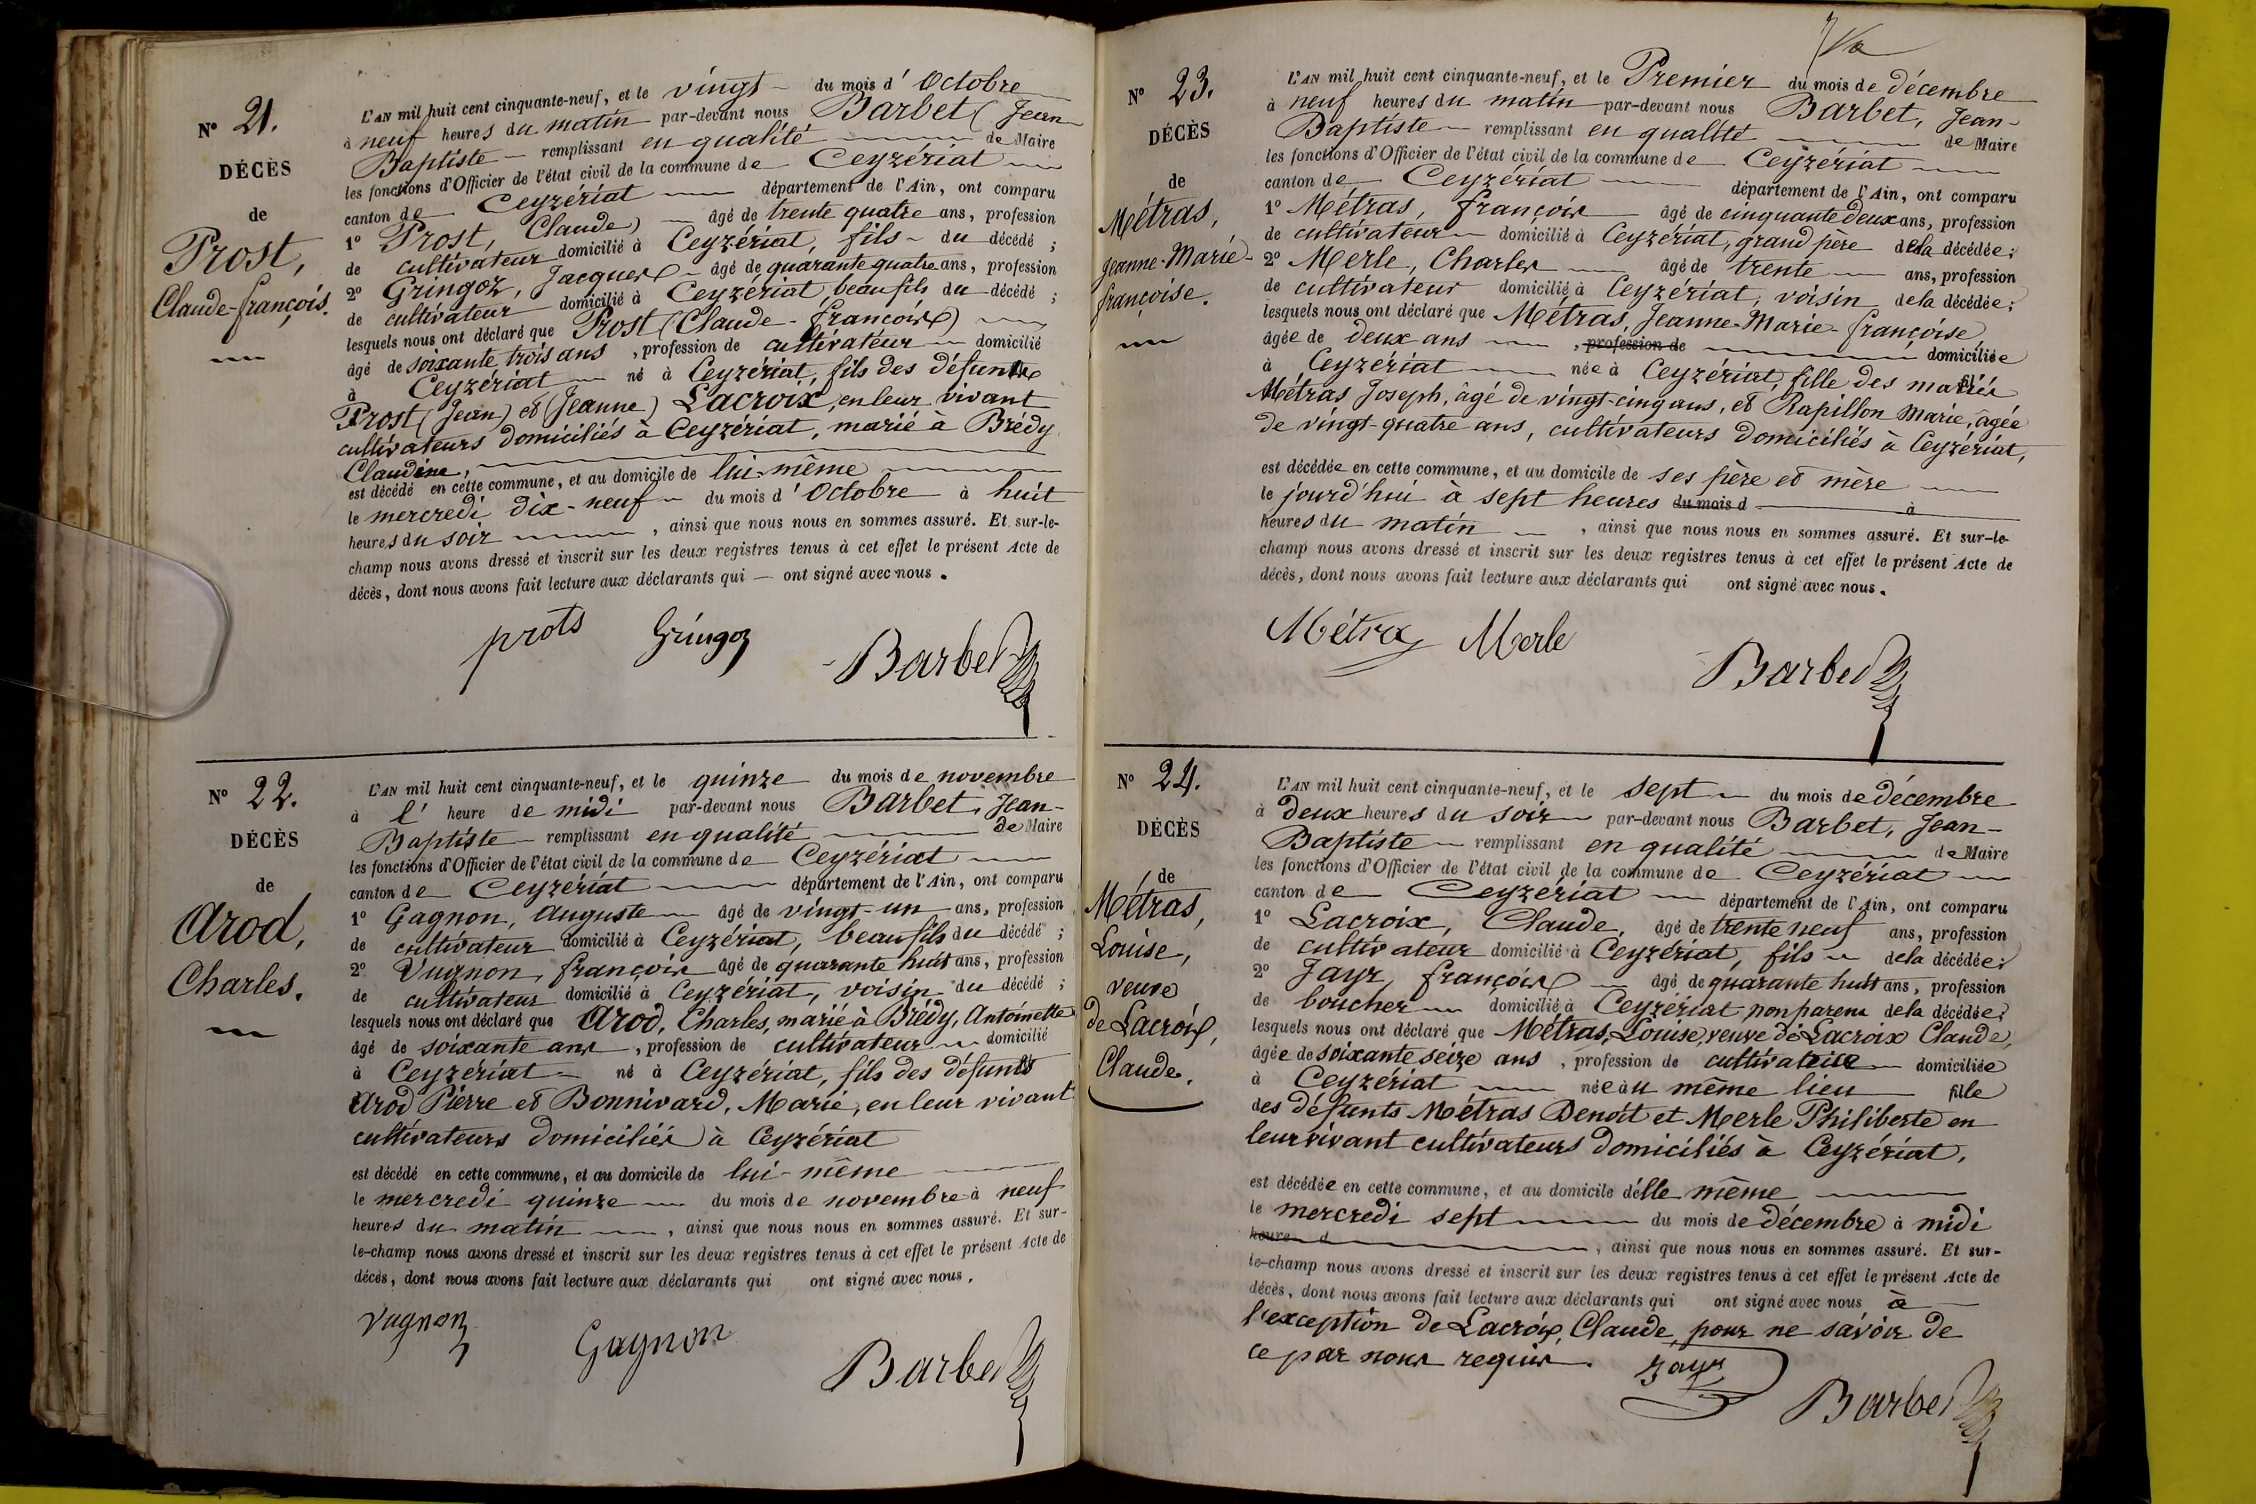 N° 21.
DÉCÈS
de
Prost,
Claude-françois.
L'AN mil huit cent cinquante-neuf, et le vingt du mois d'Octobre
à neuf heures du matin par-devant nous Barbet (Jean
Baptiste remplissant en qualité de Maire
les fonctions d'Officier de l'état civil de la commune de Ceyzériat
canton de Ceyzériat département de l'Ain, ont comparu
1° Prost, Claude) âgé de trente quatre ans, profession
de cultivateur domicilié à Ceyzériat, fils du décédé ;
2° Gringoz, Jacques âgé de quarante quatre ans, profession
de cultivateur domicilié à Ceyzériat beau fils du décédé ;
lesquels nous ont déclaré que Prost (Claude-françois)
âgé de soixante trois ans, profession de cultivateur domicilié
à Ceyzériat né à Ceyzériat, fils des défunts
Prost (Jean) et (Jeanne) Lacroix, en leur vivant
cultivateurs domiciliés à Ceyzériat, marié à Brédy
Claudine,
est décédé en cette commune, et au domicile de lui-même
le mercredi dix-neuf du mois d'Octobre à huit
heures du soir, ainsi que nous nous en sommes assuré. Et sur-le-
champ nous avons dressé et inscrit sur les deux registres tenus à cet effet le présent Acte de
décès, dont nous avons fait lecture aux déclarants qui — ont signé avec nous.
prots Gringoz Barbet
N° 22.
DÉCÈS
de
Arod,
Charles.
L'AN mil huit cent cinquante-neuf, et le quinze du mois de novembre
à l'heure de midi par-devant nous Barbet, Jean-
Baptiste remplissant en qualité de Maire
les fonctions d'Officier de l'état civil de la commune de Ceyzériat
canton de Ceyzériat département de l'Ain, ont comparu
1° Gagnon, Auguste âgé de vingt-un ans, profession
de cultivateur domicilié à Ceyzériat, beau fils du décédé ;
2° Vugnon, françois âgé de quarante huit ans, profession
de cultivateur domicilié à Ceyzériat, voisin du décédé ;
lesquels nous ont déclaré que Arod, Charles, marié à Brédy, Antoinette
âgé de soixante ans, profession de cultivateur domicilié
à Ceyzériat né à Ceyzériat, fils des défunts
Arod Pierre et Bonnivard, Marie, en leur vivant
cultivateurs domiciliés à Ceyzériat
est décédé en cette commune, et au domicile de lui-même
le mercredi quinze du mois de novembre à neuf
heures du matin, ainsi que nous nous en sommes assuré. Et sur-
le-champ nous avons dressé et inscrit sur les deux registres tenus à cet effet le présent Acte de
décès, dont nous avons fait lecture aux déclarants qui ont signé avec nous.
Vugnon Gagnon Barbet
N° 23.
DÉCÈS
de
Métras,
Jeanne-Marie-
françoise.
L'AN mil huit cent cinquante-neuf, et le Premier du mois de décembre
à neuf heures du matin par-devant nous Barbet, Jean-
Baptiste remplissant en qualité de Maire
les fonctions d'Officier de l'état civil de la commune de Ceyzériat
canton de Ceyzériat département de l'Ain, ont comparu
1° Métras, françois âgé de cinquante deux ans, profession
de cultivateur domicilié à Ceyzériat, grand père de la décédée ;
2° Merle, Charles âgé de trente ans, profession
de cultivateur domicilié à Ceyzériat, voisin de la décédée ;
lesquels nous ont déclaré que Métras, Jeanne-Marie-françoise,
âgée de deux ans, profession de domiciliée
à Ceyzériat née à Ceyzériat, fille des mariés
Métras Joseph, âgé de vingt-cinq ans, et Rapillon Marie, âgée
de vingt-quatre ans, cultivateurs domiciliés à Ceyzériat,
est décédée en cette commune, et au domicile de ses père et mère
le jourd'hui à sept heures du mois d à
heures du matin, ainsi que nous nous en sommes assuré. Et sur-le-
champ nous avons dressé et inscrit sur les deux registres tenus à cet effet le présent Acte de
décès, dont nous avons fait lecture aux déclarants qui ont signé avec nous.
Métras Merle Barbet
N° 24.
DÉCÈS
de
Métras,
Louise,
veuve
de Lacroix,
Claude.
L'AN mil huit cent cinquante-neuf, et le sept du mois de décembre
à deux heures du soir par-devant nous Barbet, Jean-
Baptiste remplissant en qualité de Maire
les fonctions d'Officier de l'état civil de la commune de Ceyzériat
canton de Ceyzériat département de l'Ain, ont comparu
1° Lacroix, Claude, âgé de trente neuf ans, profession
de cultivateur domicilié à Ceyzériat, fils de la décédée ;
2° Jayr, françois âgé de quarante huit ans, profession
de boucher domicilié à Ceyzériat, non parent de la décédée ;
lesquels nous ont déclaré que Métras, Louise, veuve de Lacroix Claude,
âgée de soixante seize ans, profession de cultivatrice domiciliée
à Ceyzériat née au même lieu fille
des défunts Métras Benoit et Merle Philiberte en
leur vivant cultivateurs domiciliés à Ceyzériat,
est décédée en cette commune, et au domicile d'elle même
le mercredi sept du mois de décembre à midi
heures d, ainsi que nous nous en sommes assuré. Et sur-
le-champ nous avons dressé et inscrit sur les deux registres tenus à cet effet le présent Acte de
décès, dont nous avons fait lecture aux déclarants qui ont signé avec nous à
l'exception de Lacroix, Claude, pour ne savoir de
ce par nous requis. Jayr Barbet